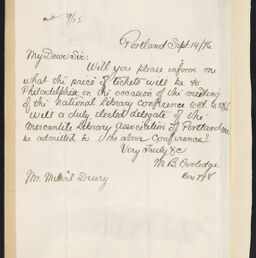 9/15
Portland Sept 14/76
My Dear Sir:
Will you please inform me
what the price of tickets will be to
Philadelphia on the occasion of the meeting
of the National Library Conference Oct 4, 5 & 6
Will a duly elected delegate of the
Mercantile Library Association of Portland Me
be admitted to the above Conference?
Very Truly &c
M. B. Coolidge
Box 798
Mr. Melvil Dewey